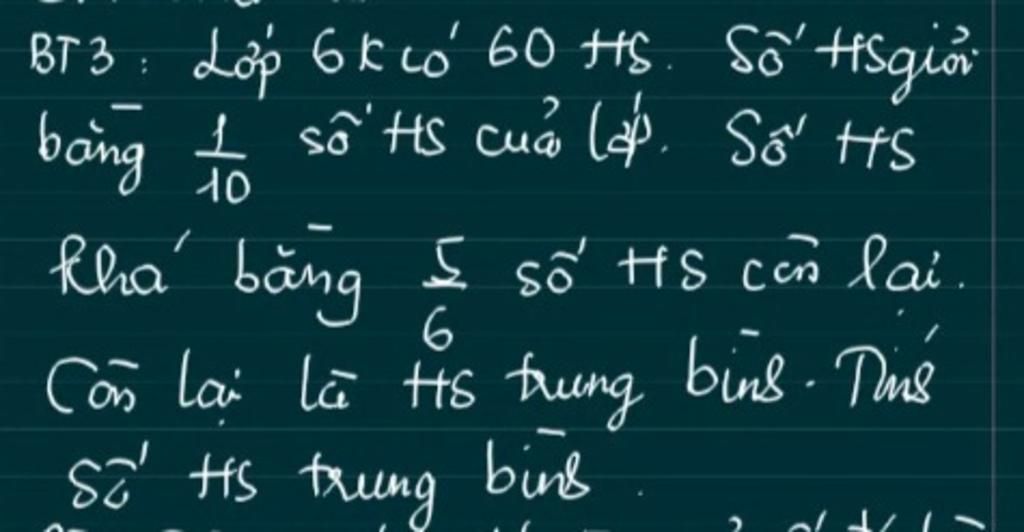 BT3: Lớp 6K có 60 HS. Số HS giỏi
bằng 1/10 số HS của lớp. Số HS
khá bằng 5/6 số HS còn lại.
Còn lại là HS trung bình. Tính
số HS trung bình.